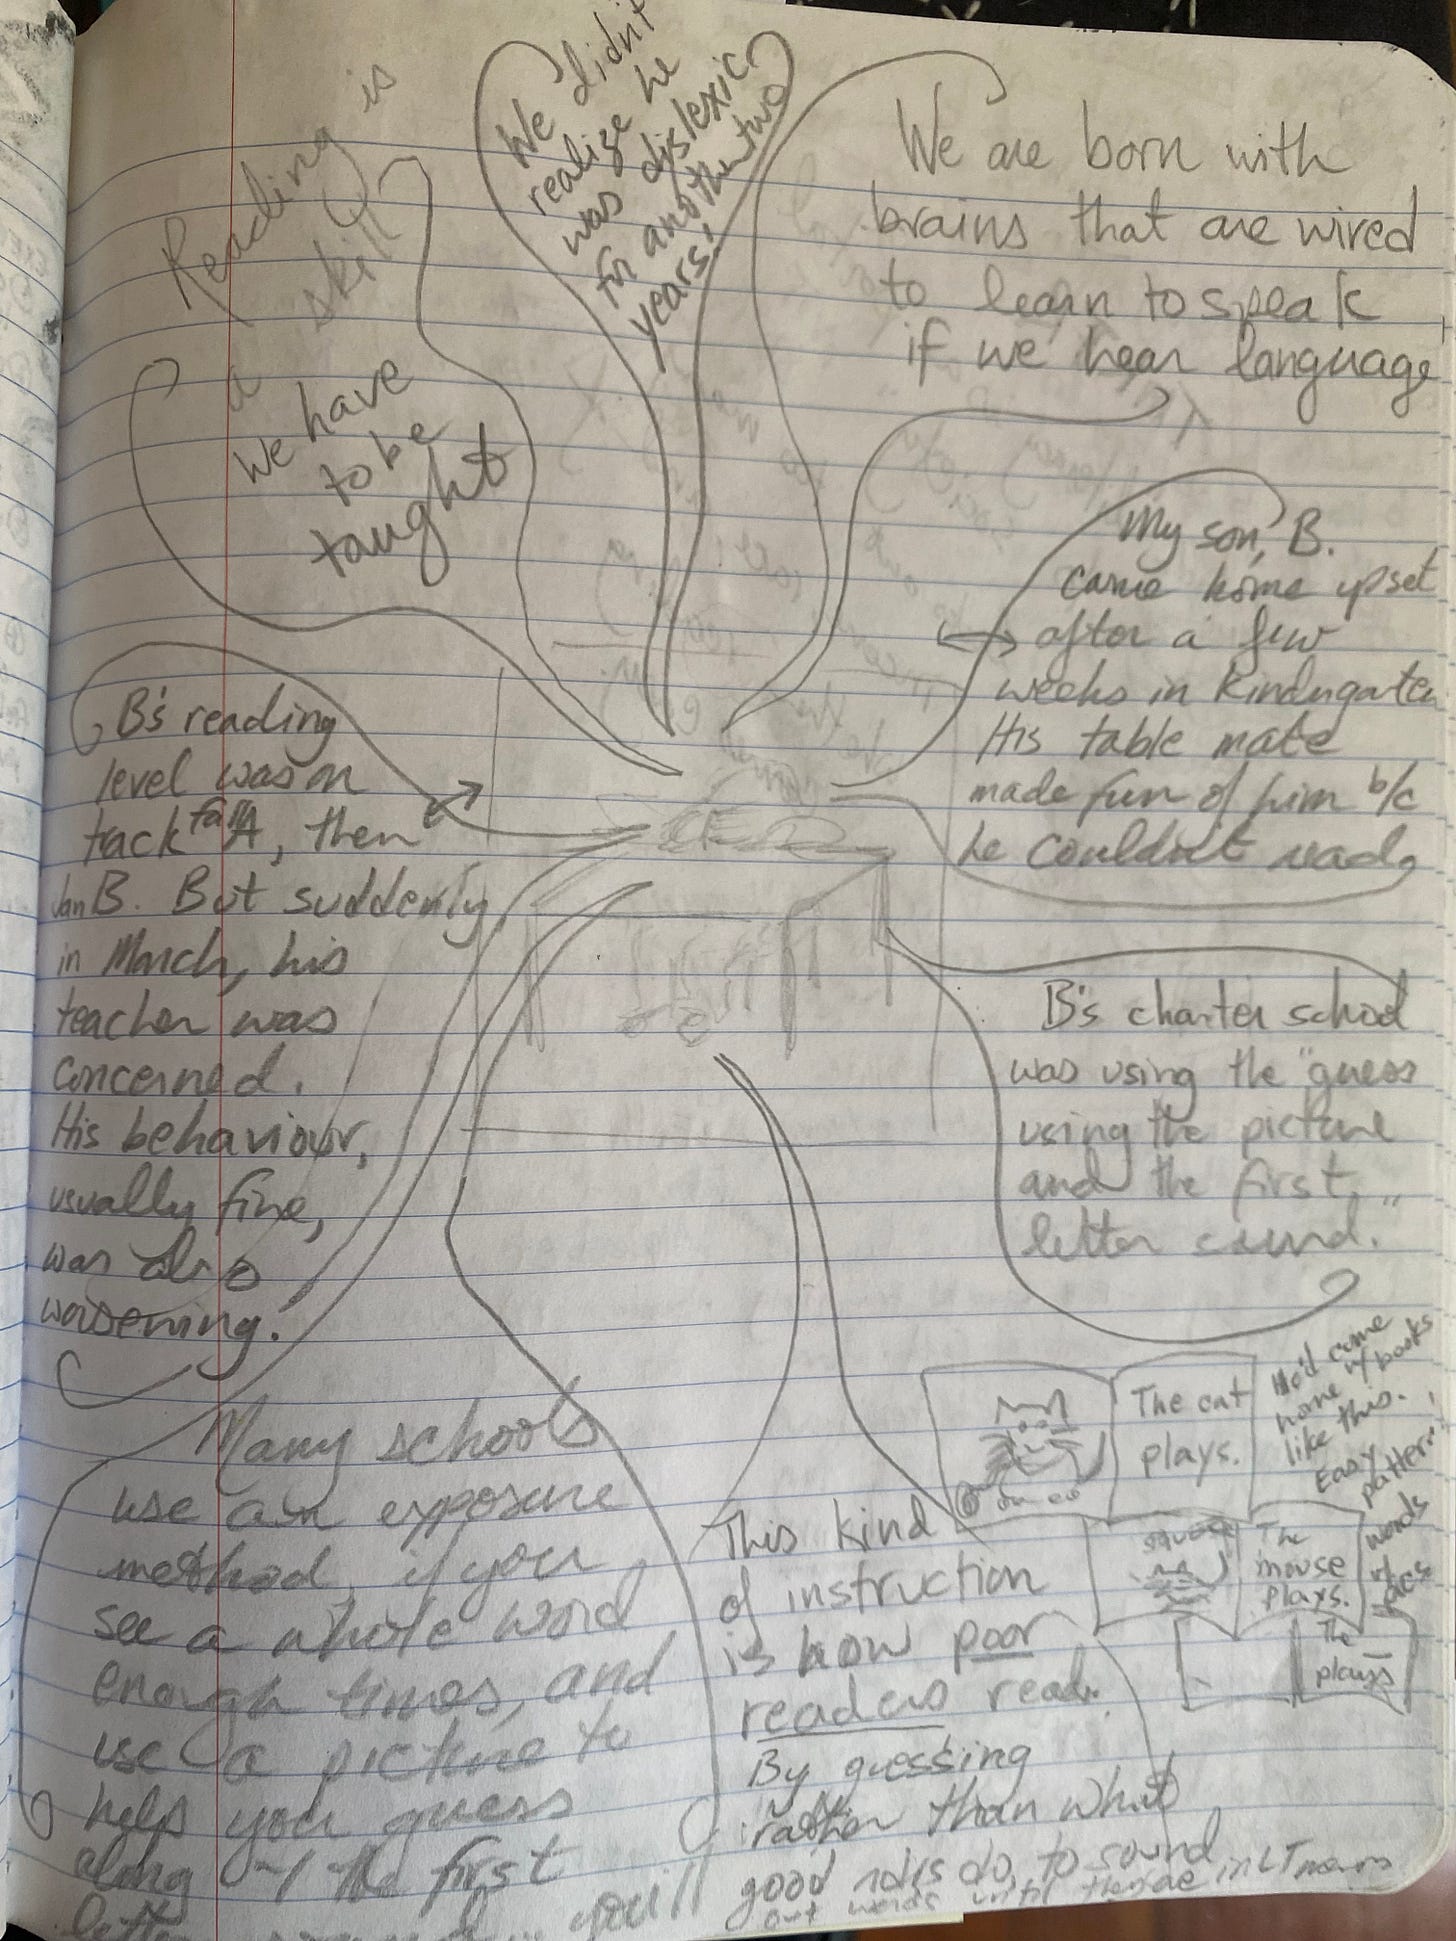 Reading is
a skill
we have
to be
taught
We didn't
realize he
was dyslexic
for another two
years!
We are born with
brains that are wired
to learn to speak
if we hear language
My son, B.
came home upset
after a few
weeks in Kindergarten
His table mate
made fun of him b/c
he couldn't read.
B's reading
level was on
track fall A, then
Jan B. But suddenly
in March, his
teacher was
concerned.
His behaviour,
usually fine,
was also
worsening.
B's charter school
was using the "guess
using the picture
and the first
letter sound."
He'd come
home w/ books
like this.
Easy
pattern
words
w/
pics
The cat
plays.
The
mouse
plays.
The
plays
Many schools
use an exposure
method, if you
see a whole word
enough times, and
use a picture to
help you guess
along w/ the first
you'll
This kind
of instruction
is how poor
readers read.
By guessing
rather than what
good rdrs do, to sound
out words until they're in LT mem